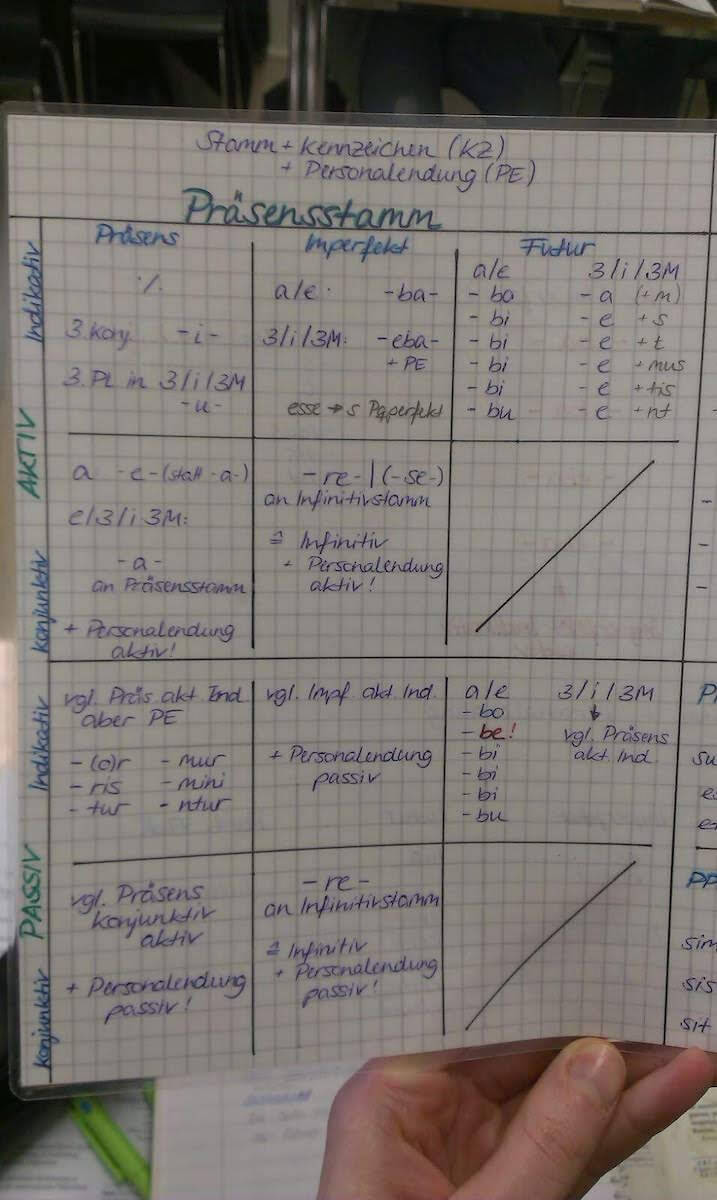 Stamm + Kennzeichen (KZ)
+ Personalendung (PE)
Präsensstamm
Präsens
Imperfekt
Futur
AKTIV
Indikativ
./.
3. Konj. -i-
3. Pl. in 3/i/3M
-u-
a/e: -ba-
3/i/3M: -eba-
+ PE
esse → s
a/e 3/i/3M
- bo - a (+m)
- bi - e +s
- bi - e +t
- bi - e +mus
- bi - e +tis
- bu - e +nt
Konjunktiv
a -e- (statt -a-)
e/3/i 3M:
-a-
an Präsensstamm
+ Personalendung
aktiv!
-re- | (-se-)
an Infinitivstamm
≙ Infinitiv
+ Personalendung
aktiv!
PASSIV
Indikativ
vgl. Präs. akt. Ind.
aber PE
- (o)r - mur
- ris - mini
- tur - ntur
vgl. Impf. akt. Ind.
+ Personalendung
passiv
a/e 3/i/3M
- bo ↓
- be! vgl. Präsens
- bi akt. Ind.
- bi
- bi
- bu
Konjunktiv
vgl. Präsens
Konjunktiv
aktiv
+ Personalendung
passiv!
-re-
an Infinitivstamm
≙ Infinitiv
+ Personalendung
passiv!
sis
sit